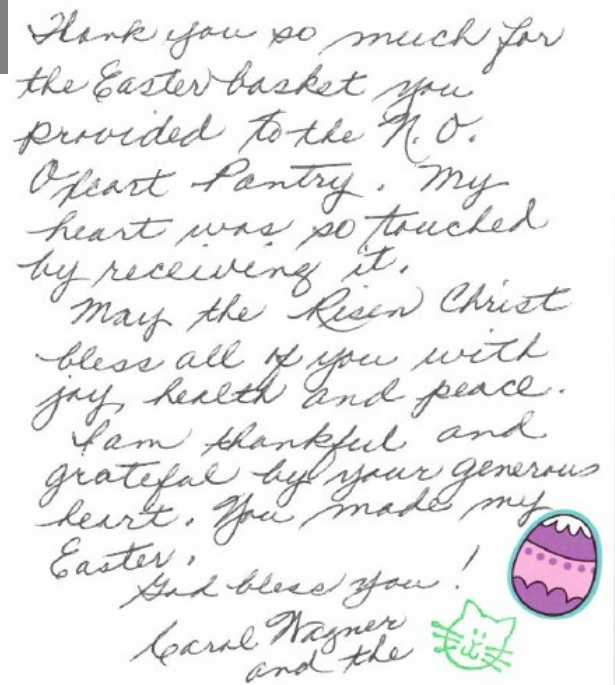 Thank you so much for
the Easter basket you
provided to the N.O.
Pantry. My
heart was so touched
by receiving it.
May the Risen Christ
bless all of you with
joy, health and peace.
I am thankful and
grateful by your generous
heart. You made my
Easter.
God bless you!
Carol Wagner
and the